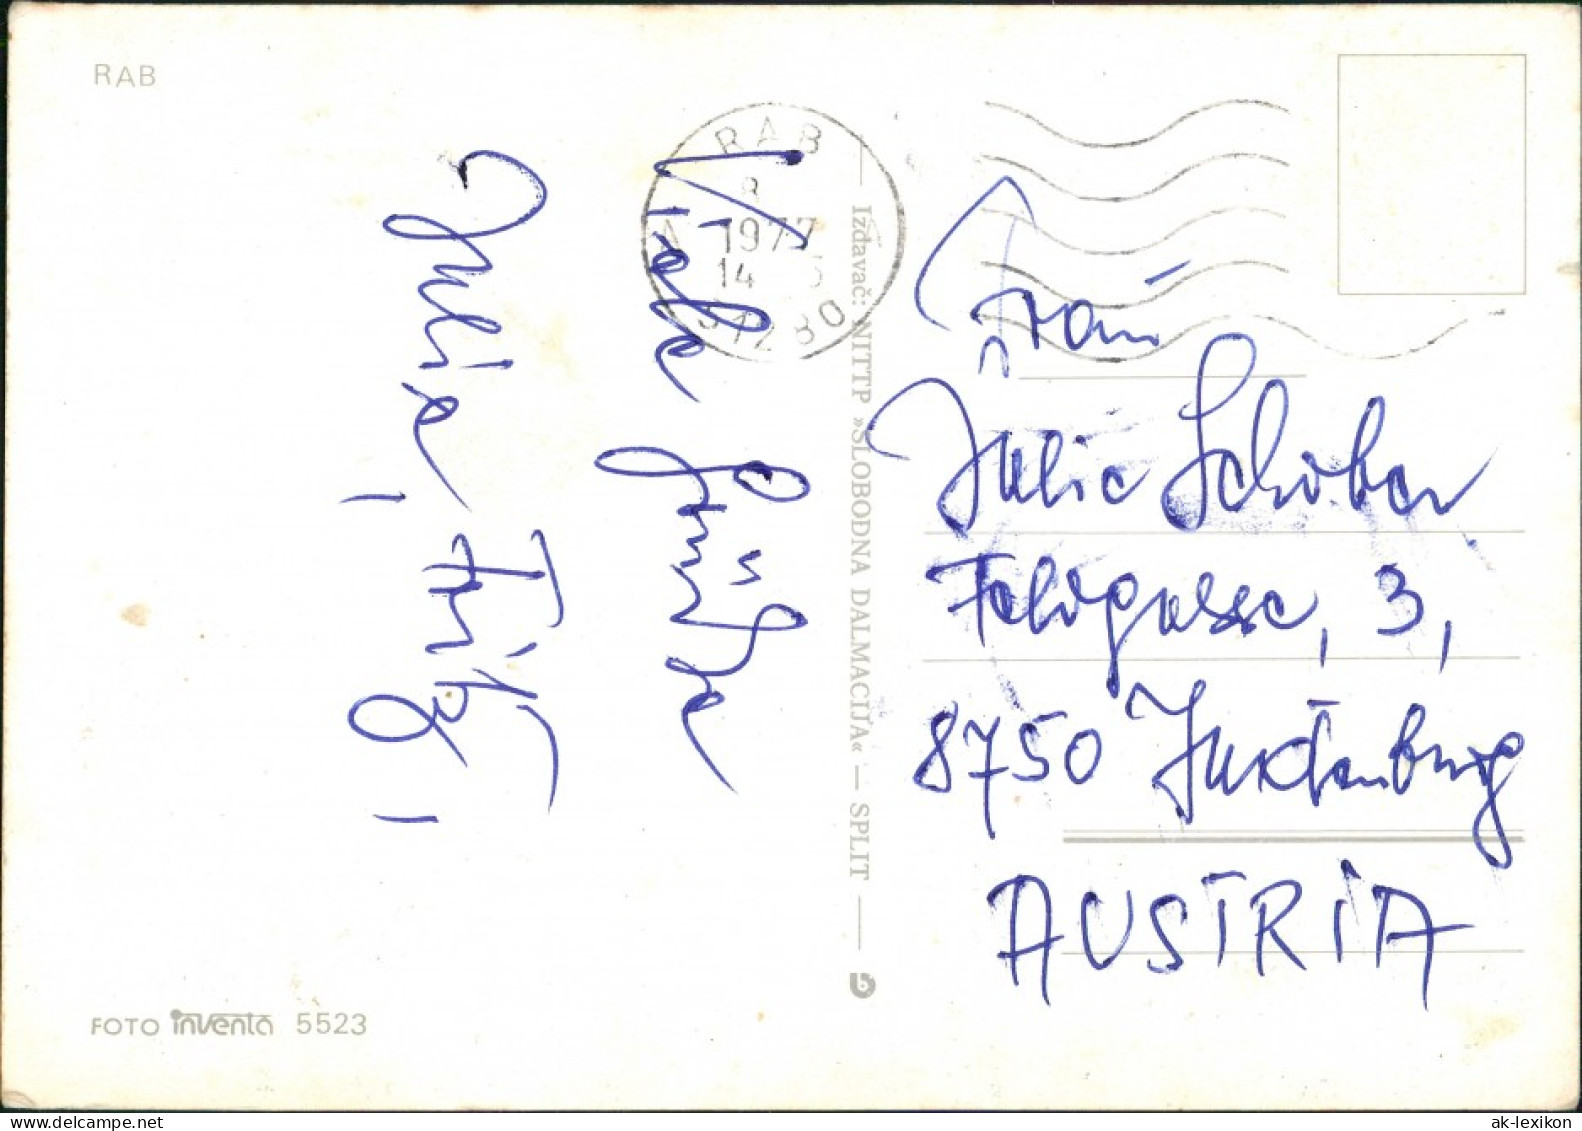 RAB
RAB
8
1977
14
51280
Viele
Grüße
Julia,
Fritz,
Izdavač: NITTP »SLOBODNA DALMACIJA« — SPLIT
Frau
Julie Schober
Feldgasse, 3,
8750
AUSTRIA
FOTO inventa 5523
ak-lexikon